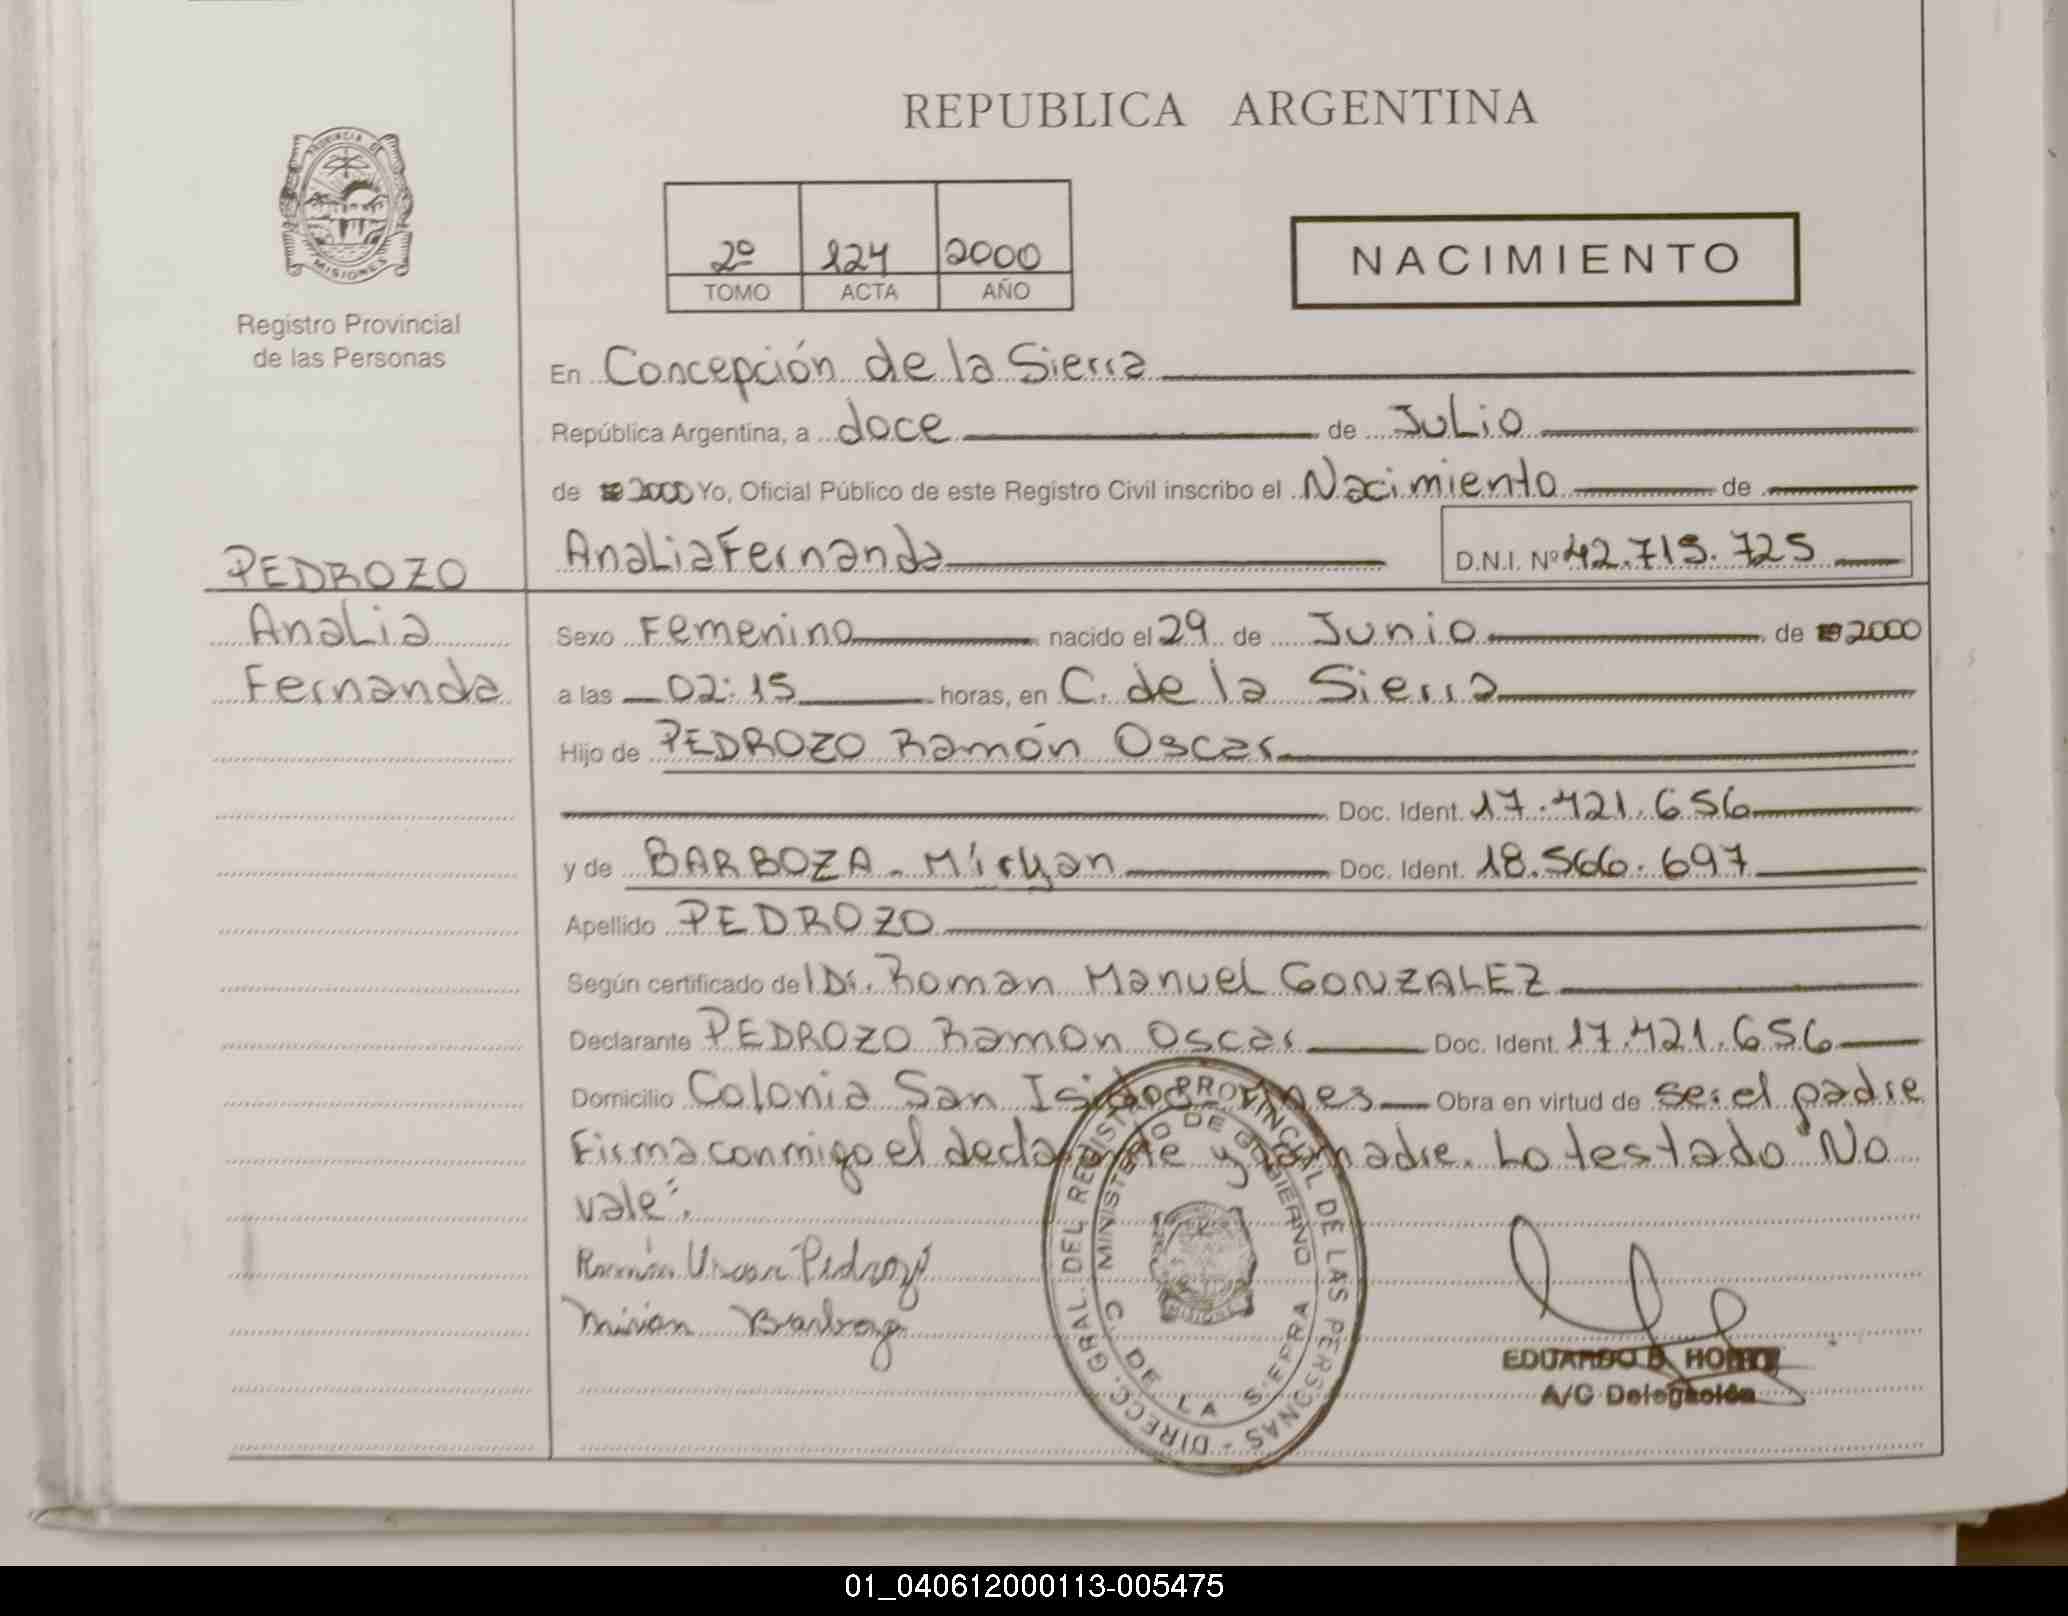 REPUBLICA ARGENTINA
PROVINCIA DE
MISIONES
Registro Provincial
de las Personas
2º 124 2000
TOMO ACTA AÑO
NACIMIENTO
En Concepción de la Sierra
República Argentina, a doce de Julio
de 2000 Yo, Oficial Público de este Registro Civil inscribo el Nacimiento de
Analia Fernanda D.N.I. Nº 42.715.725
PEDROZO
Analia
Fernanda
Sexo Femenino nacido el 29 de Junio de 2000
a las 02:15 horas, en C. de la Sierra
Hijo de PEDROZO Ramón Oscar
Doc. Ident. 17.421.656
y de BARBOZA - Miryan Doc. Ident. 18.566.697
Apellido PEDROZO
Según certificado del Dr. Roman Manuel GONZALEZ
Declarante PEDROZO Ramon Oscar Doc. Ident. 17.421.656
Domicilio Colonia San Isidro Obra en virtud de ser el padre
Firma conmigo el declarante y la madre. Lo testado "No
vale".
Ramón Oscar Pedrozo
Mirian Barboza
DIRECC. GRAL. DEL REGISTRO PROVINCIAL DE LAS PERSONAS -
MINISTERIO DE GOBIERNO
C. DE LA SIERRA
EDUARDO B.
A/C Delegación
01_040612000113-005475